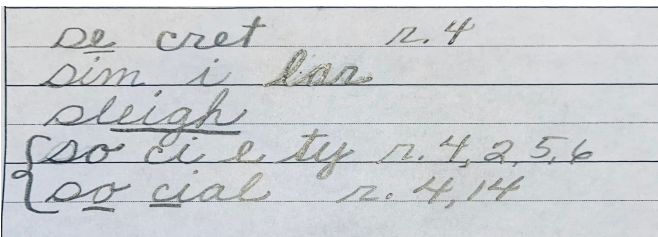 se cret r. 4
sim i lar
sleigh
so ci e ty r. 4, 2, 5, 6
so cial r. 4, 14